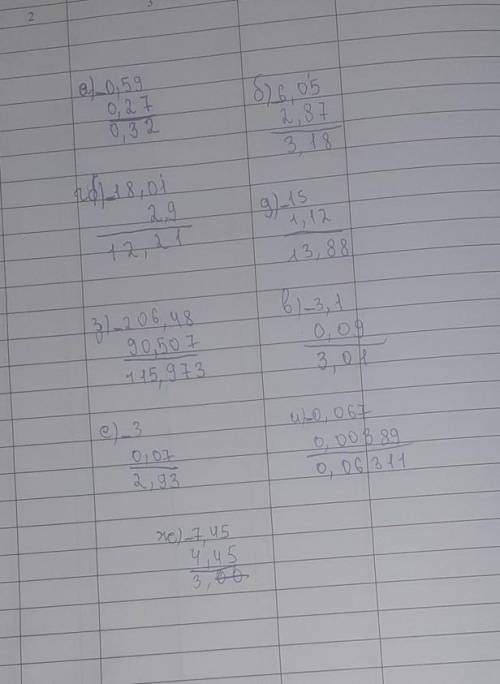 2 3
а) -0,59
0,27
0,32
б) 6,05
2,87
3,18
-18,01
2,9
12,21
д) -15
1,12
13,88
з) -206,48
90,507
115,973
в) -3,1
0,09
3,01
е) -3
0,07
2,93
и) -0,067
0,00389
0,06311
ж) -7,45
4,45
3,00